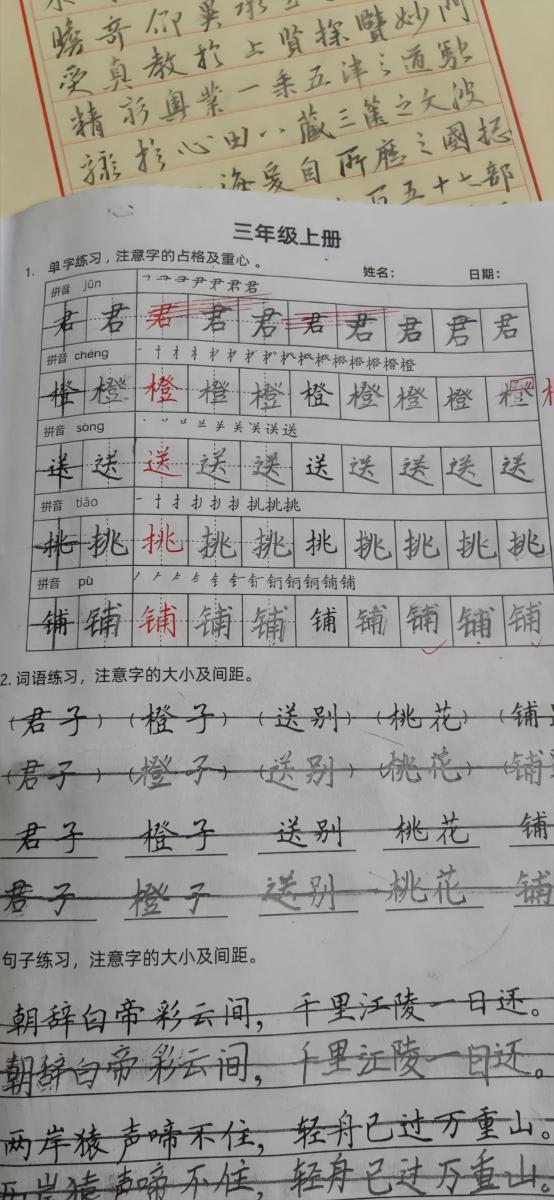 瞻奇仰異承
受真教於上賢探賾妙門
精窮奧業一乘五津之道馳
驟於心田八藏三篋之文波
濤於海爰自所歷之國揔
百五十七部
心
三年级上册
1. 单字练习，注意字的占格及重心。 姓名： 日期：
拼音 jūn
君 君 君 君 君 君 君 君 君 君
拼音 chéng
橙 橙 橙 橙 橙 橙 橙 橙 橙 橙
拼音 sòng
送 送 送 送 送 送 送 送 送 送
拼音 tiāo
挑 挑 挑 挑 挑 挑 挑 挑 挑 挑
拼音 pù
铺 铺 铺 铺 铺 铺 铺 铺 铺 铺
2. 词语练习，注意字的大小及间距。
（君子）（橙子）（送别）（桃花）（铺
（君子）（橙子）（送别）（桃花）（铺
君子 橙子 送别 桃花 铺
君子 橙子 送别 桃花 铺
句子练习，注意字的大小及间距。
朝辞白帝彩云间，千里江陵一日还。
朝辞白帝彩云间，千里江陵一日还。
两岸猿声啼不住，轻舟已过万重山。
两岸猿声啼不住，轻舟已过万重山。